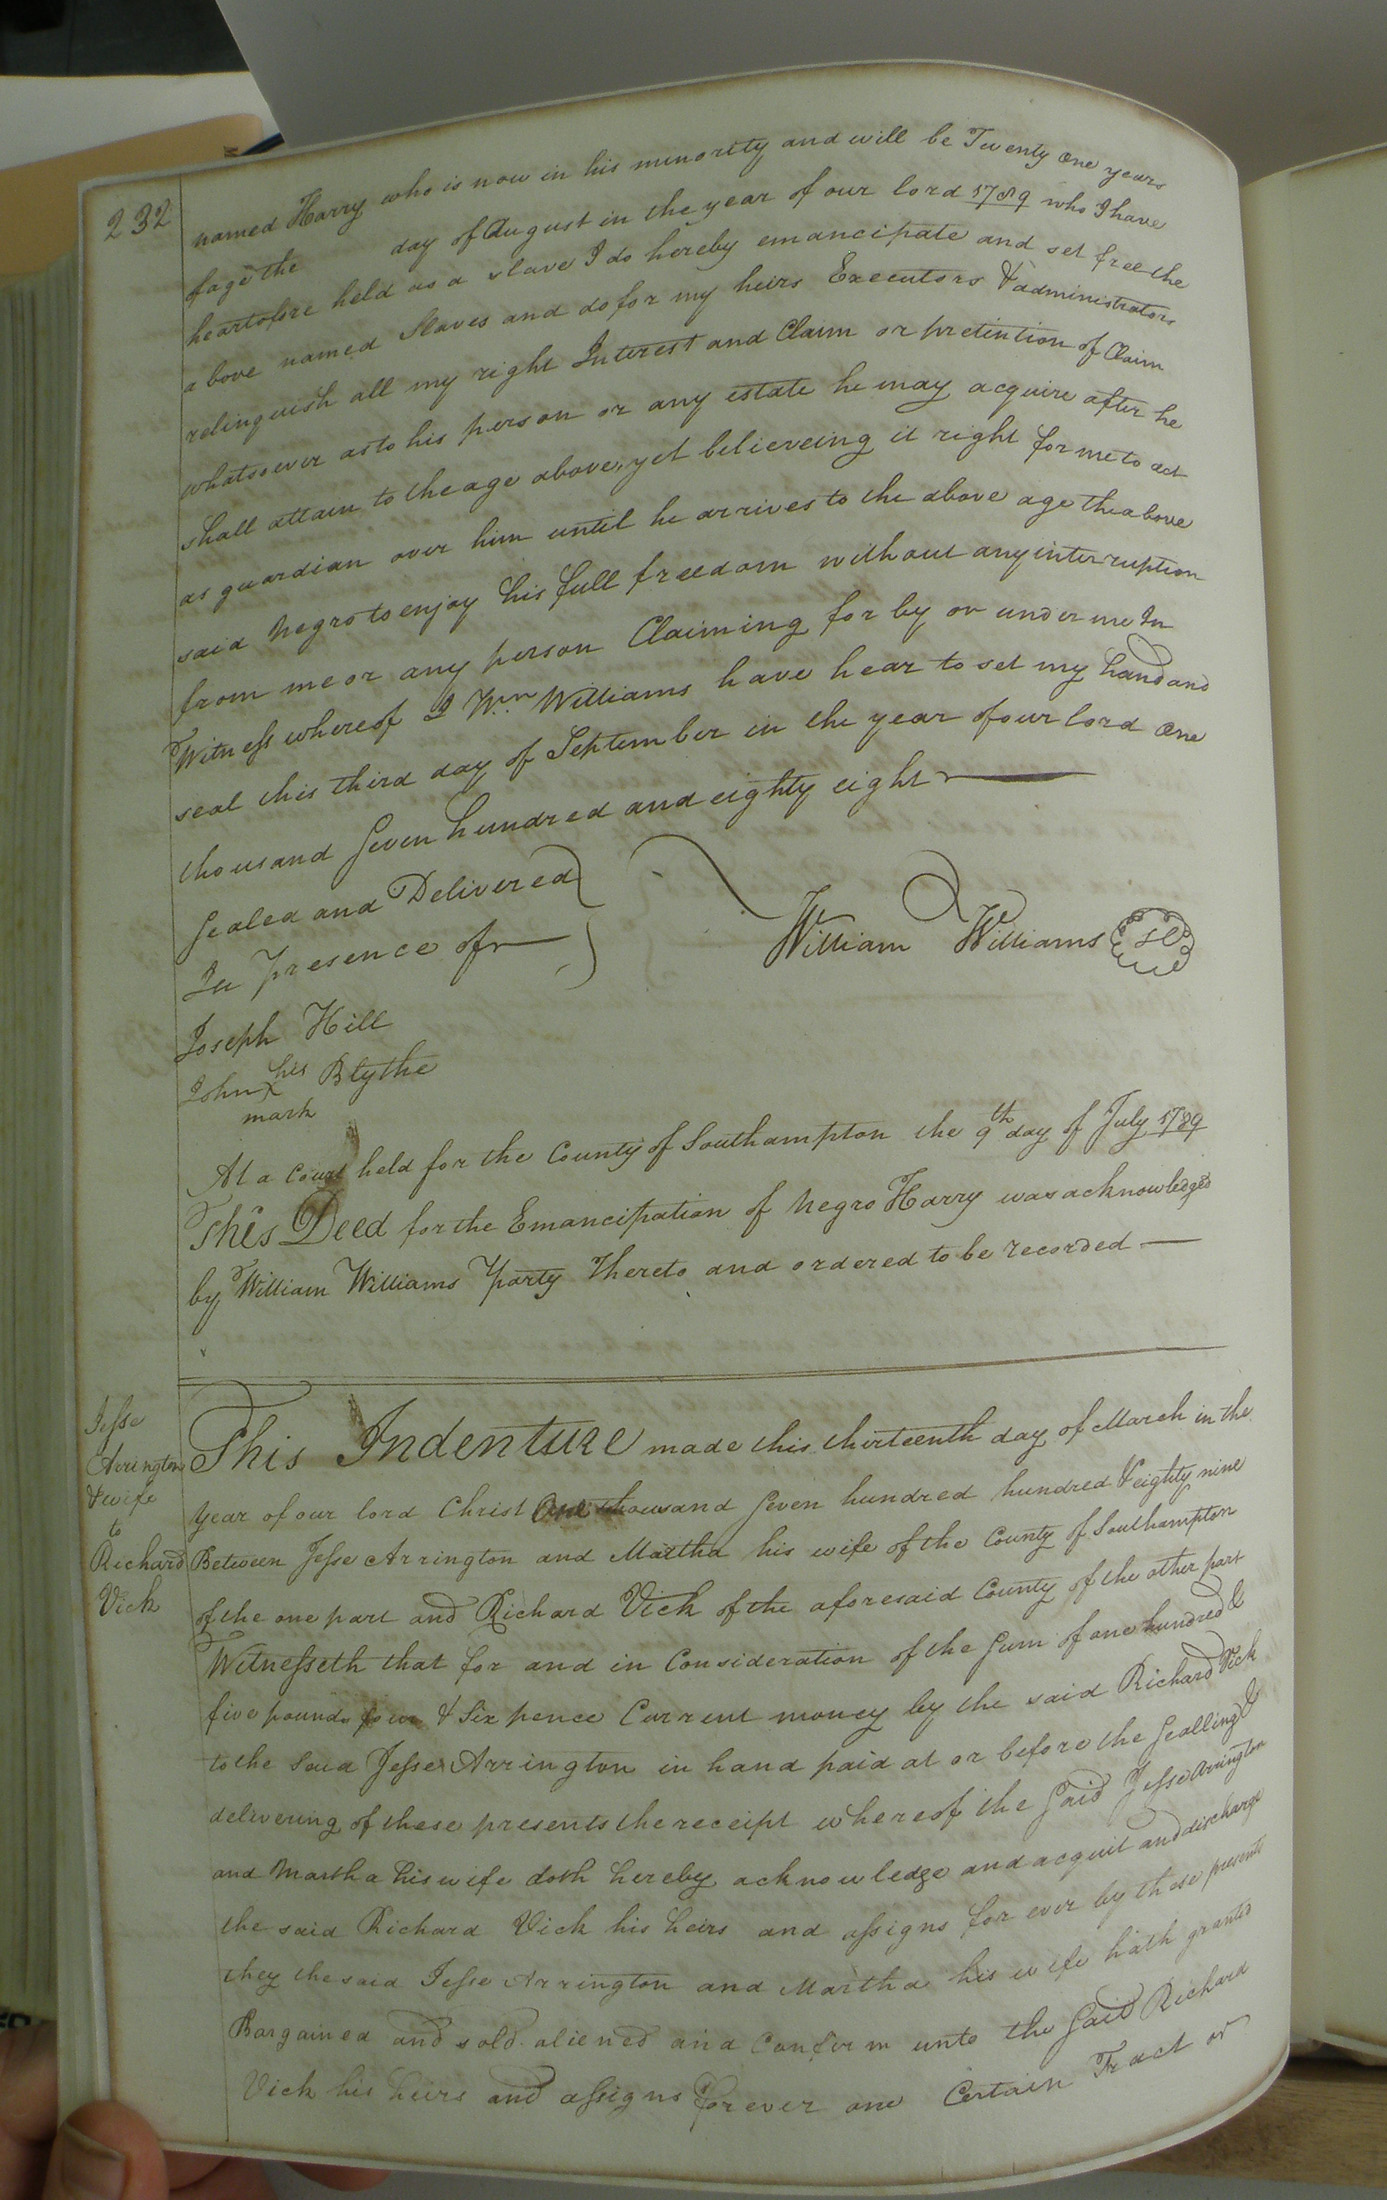 232
named Harry who is now in his minority and will be Twenty one years
of age the day of August in the year of our lord 1789 who I have
heartofore held as a slave I do hereby emancipate and set free the
above named Slaves and do for my heirs Executors & administrators
relinquish all my right Interest and Claim or pretintion of Claim
whatsoever as to his person or any estate he may acquire after he
shall attain to the age above, yet believeing it right for me to act
as guardian over him until he arrives to the above age the above
said Negro to enjoy his full freedom without any interruption
from me or any person Claiming for by or under me In
Witness whereof I Wm Williams have hear to set my hand and
seal this third day of September in the year of our lord one
thousand Seven hundred and eighty eight
Sealed and Delivered
In presence of
William Williams SC
Joseph Hill
his
John X Blythe
mark
At a Court held for the County of Southampton the 9th day of July 1789
This Deed for the Emancipation of Negro Harry was acknowledged
by William Williams Party Thereto and ordered to be recorded
Jesse
Arrington
& wife
to
Richard
Vick
This Indenture made this thirteenth day of March in the
year of our lord Christ One thousand Seven hundred hundred & eighty nine
Between Jesse Arrington and Martha his wife of the County of Southampton
of the one part and Richard Vick of the aforesaid County of the other part
Witnesseth that for and in Consideration of the Sum of one hundred &
five pounds four & Six pence Current money by the said Richard Vick
to the said Jesse Arrington in hand paid at or before the Sealling &
delivering of these presents the receipt whereof the said Jesse Arrington
and Martha his wife doth hereby acknowledge and acquit and discharge
the said Richard Vick his heirs and assigns for ever by these presents
they the said Jesse Arrington and Martha his wife hath granted
Bargained and sold aliened and Confirm unto the said Richard
Vick his heirs and assigns forever one Certain Tract or